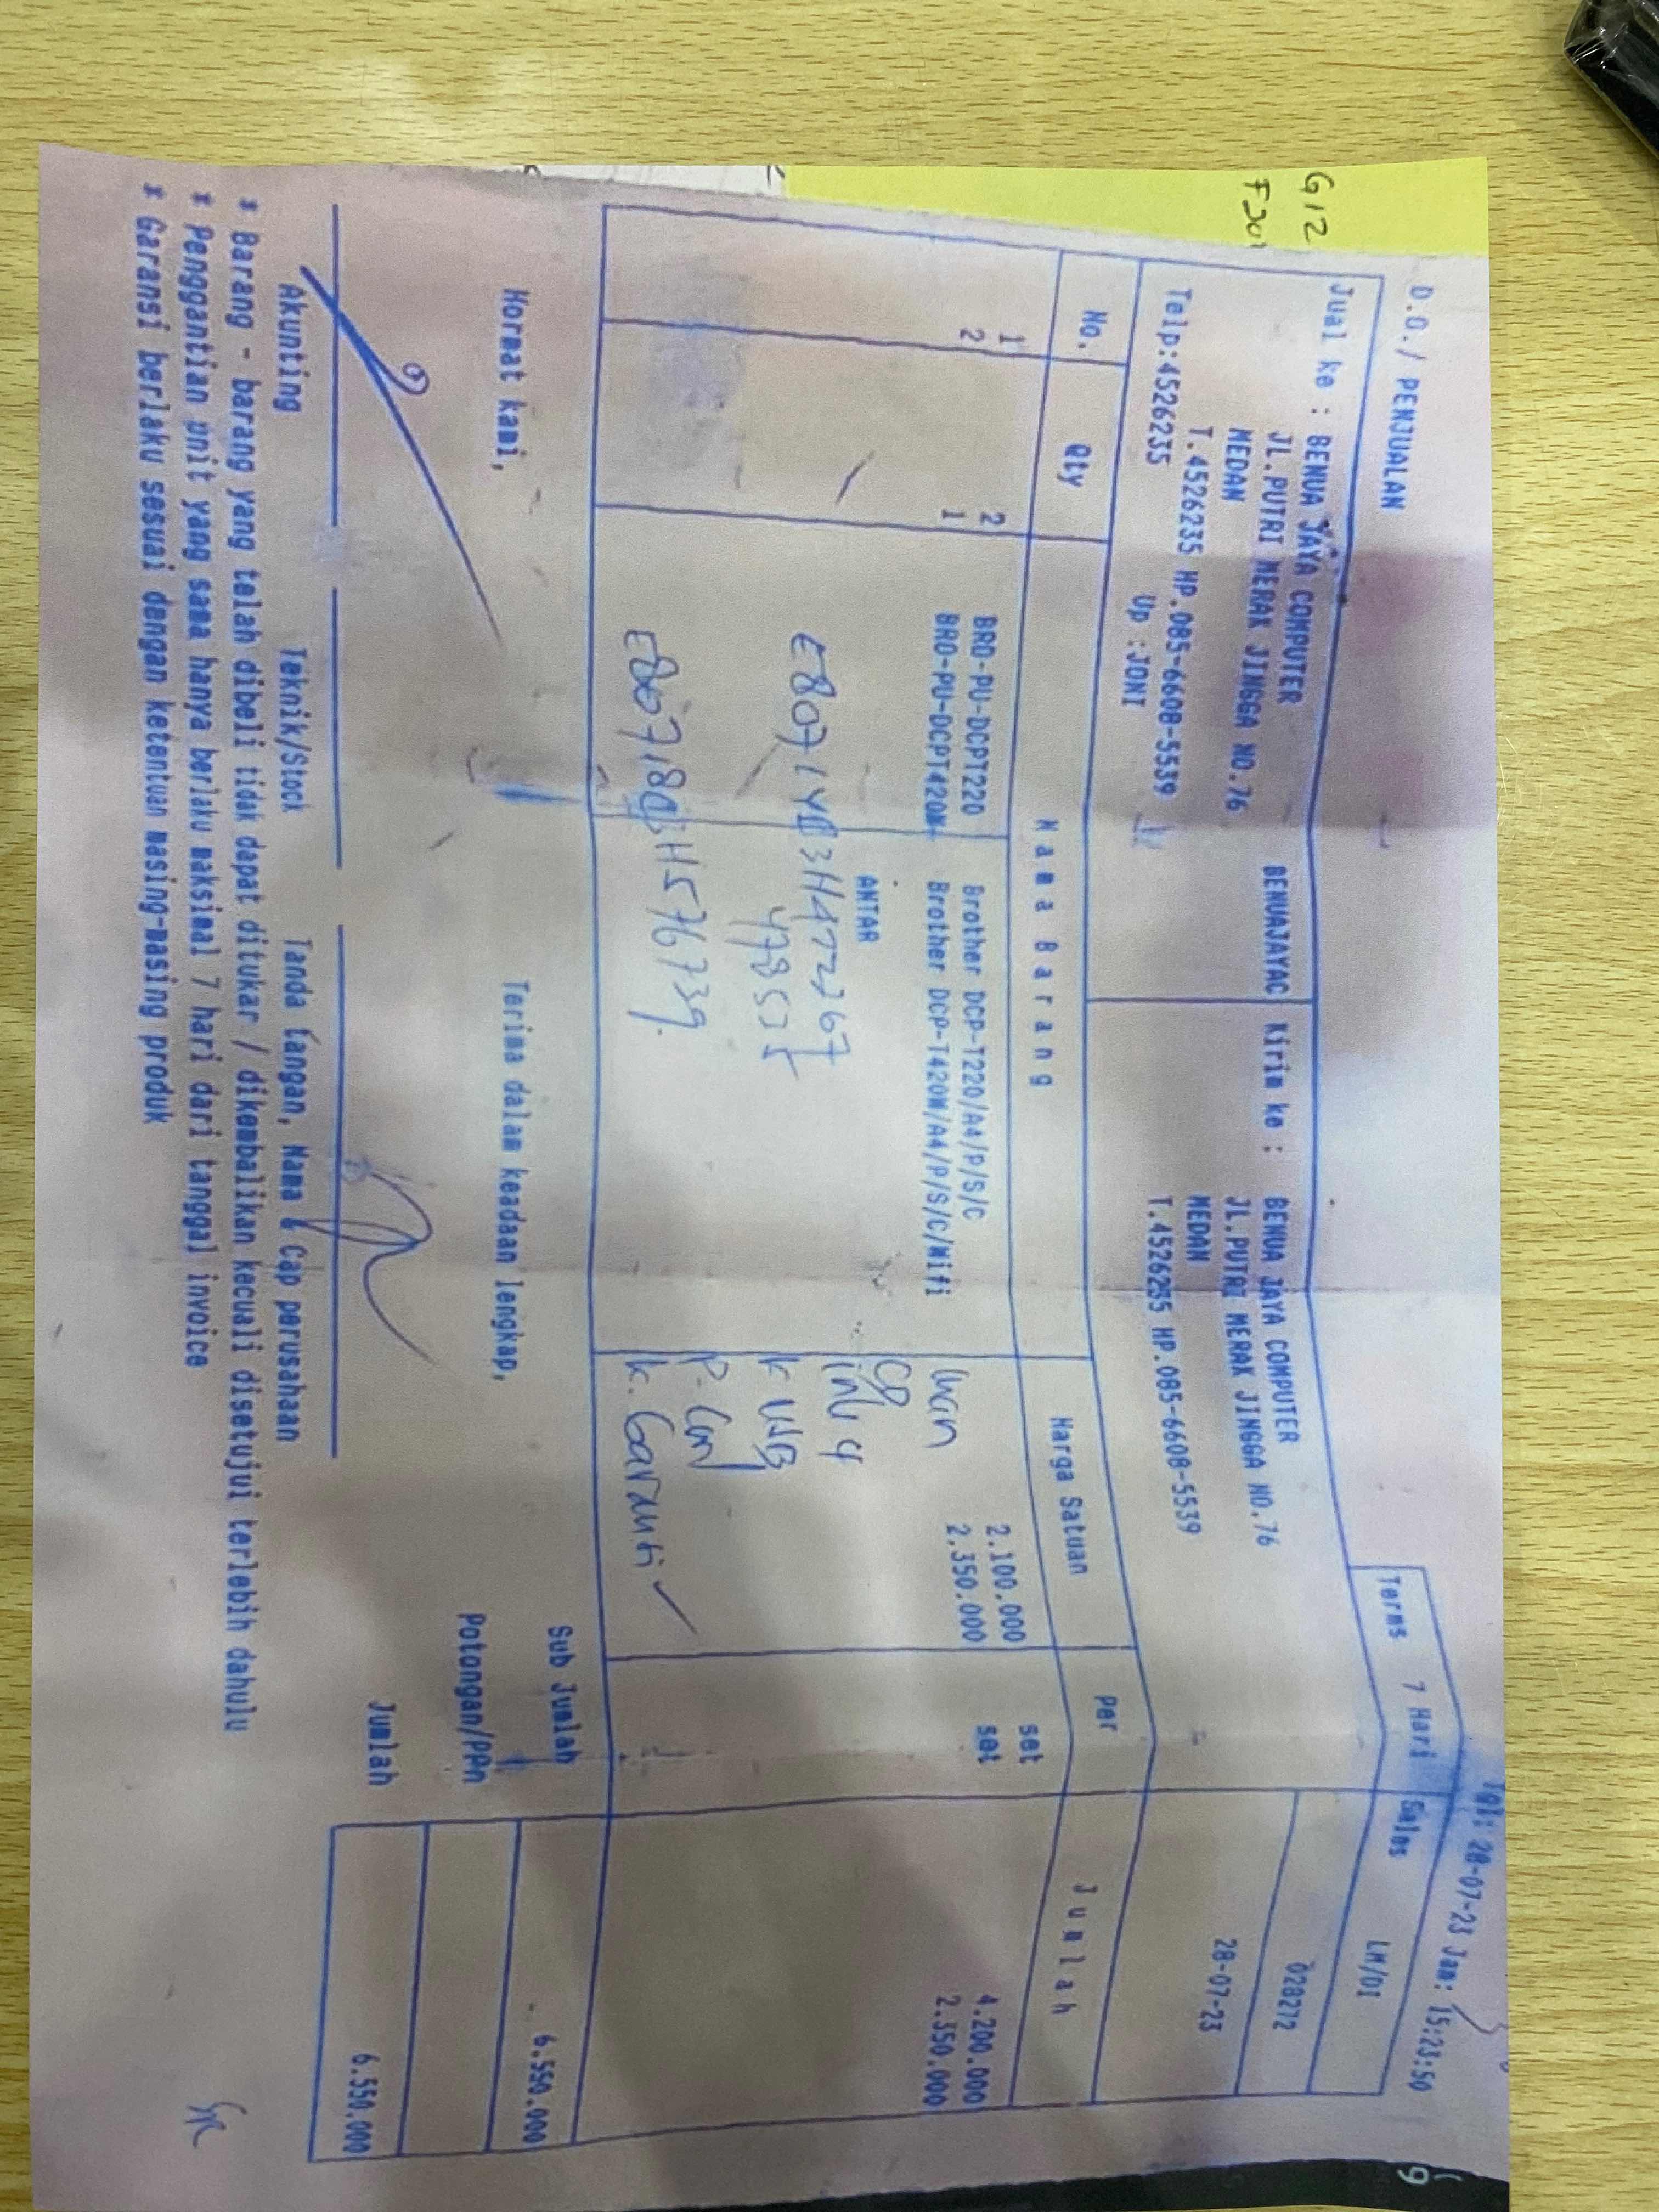 G12
F20
D.O./ PENJUALAN
Tgl: 28-07-23 Jam: 15:23:50
Terms 7 Hari Sales LM/01
Jual ke : BENUA JAYA COMPUTER BENUAJAYAC
JL.PUTRI MERAK JINGGA NO.76
MEDAN
T.4526235 HP.085-6608-5539
Telp:4526235 Up :JONI
Kirim ke : BENUA JAYA COMPUTER
JL.PUTRI MERAK JINGGA NO.76
MEDAN
T.4526235 HP.085-6608-5539
028272
28-07-23
No. Qty Nama Barang Harga Satuan Per Jumlah
1 2 BRO-PU-DCPT220 Brother DCP-T220/A4/P/S/C 2.100.000 set 4.200.000
2 1 BRO-PU-DCPT420W+ Brother DCP-T420W/A4/P/S/C/Wifi 2.350.000 set 2.350.000
ANTAR
CD
ink 4
K USB
K. Garansi
Hormat kami,
Terima dalam keadaan lengkap,
Sub Jumlah 6.550.000
Potongan/PPn
Jumlah 6.550.000
Akunting Teknik/Stock Tanda tangan, Nama & Cap perusahaan
* Barang - barang yang telah dibeli tidak dapat ditukar / dikembalikan kecuali disetujui terlebih dahulu
* Penggantian unit yang sama hanya berlaku maksimal 7 hari dari tanggal invoice
* Garansi berlaku sesuai dengan ketentuan masing-masing produk